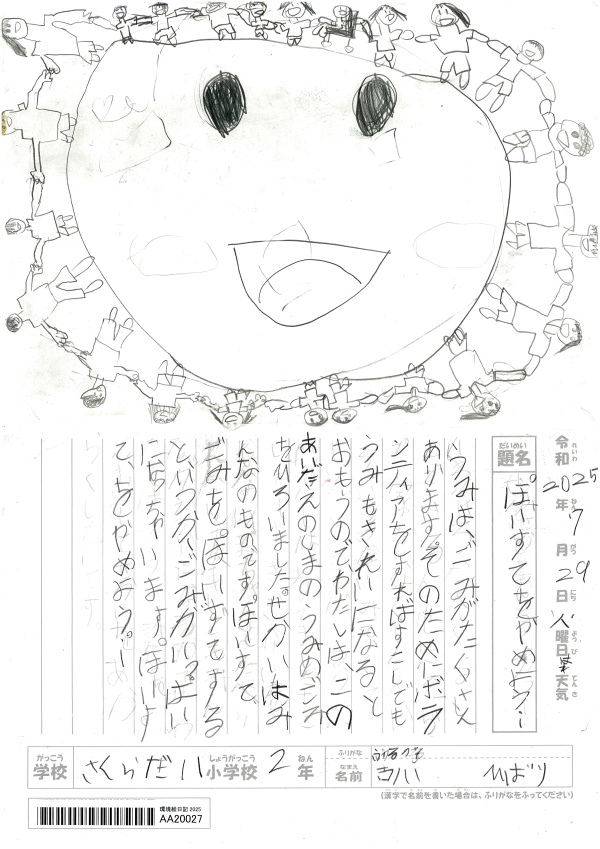 令和 れいわ
2025年 ねん 7月 がつ 29日 にち 火曜日 ようび 天気 てんき
だいめい
題名 ぽいすてをやめよう!
うみは、ごみがたくさん
あります。そのためにボラ
ンティアをすればすこしでも
うみもきれいになると
おもうのでわたしは、この
あいだえのしまのうみのごみ
をひろいました。せかいはみ
んなのものです。ぽいすて
だみを、ぽーずてする
といつかごみがいっぱい
になちゃいます。ぽいす
て、をやめよう!
がっこう 学校 さくらだい しょうがっこう 小学校 2 ねん 年
ふりがな
なまえ 名前 ひばり
(漢字で名前を書いた場合は、ふりがなをふってください)
環境絵日記 2025
AA20027